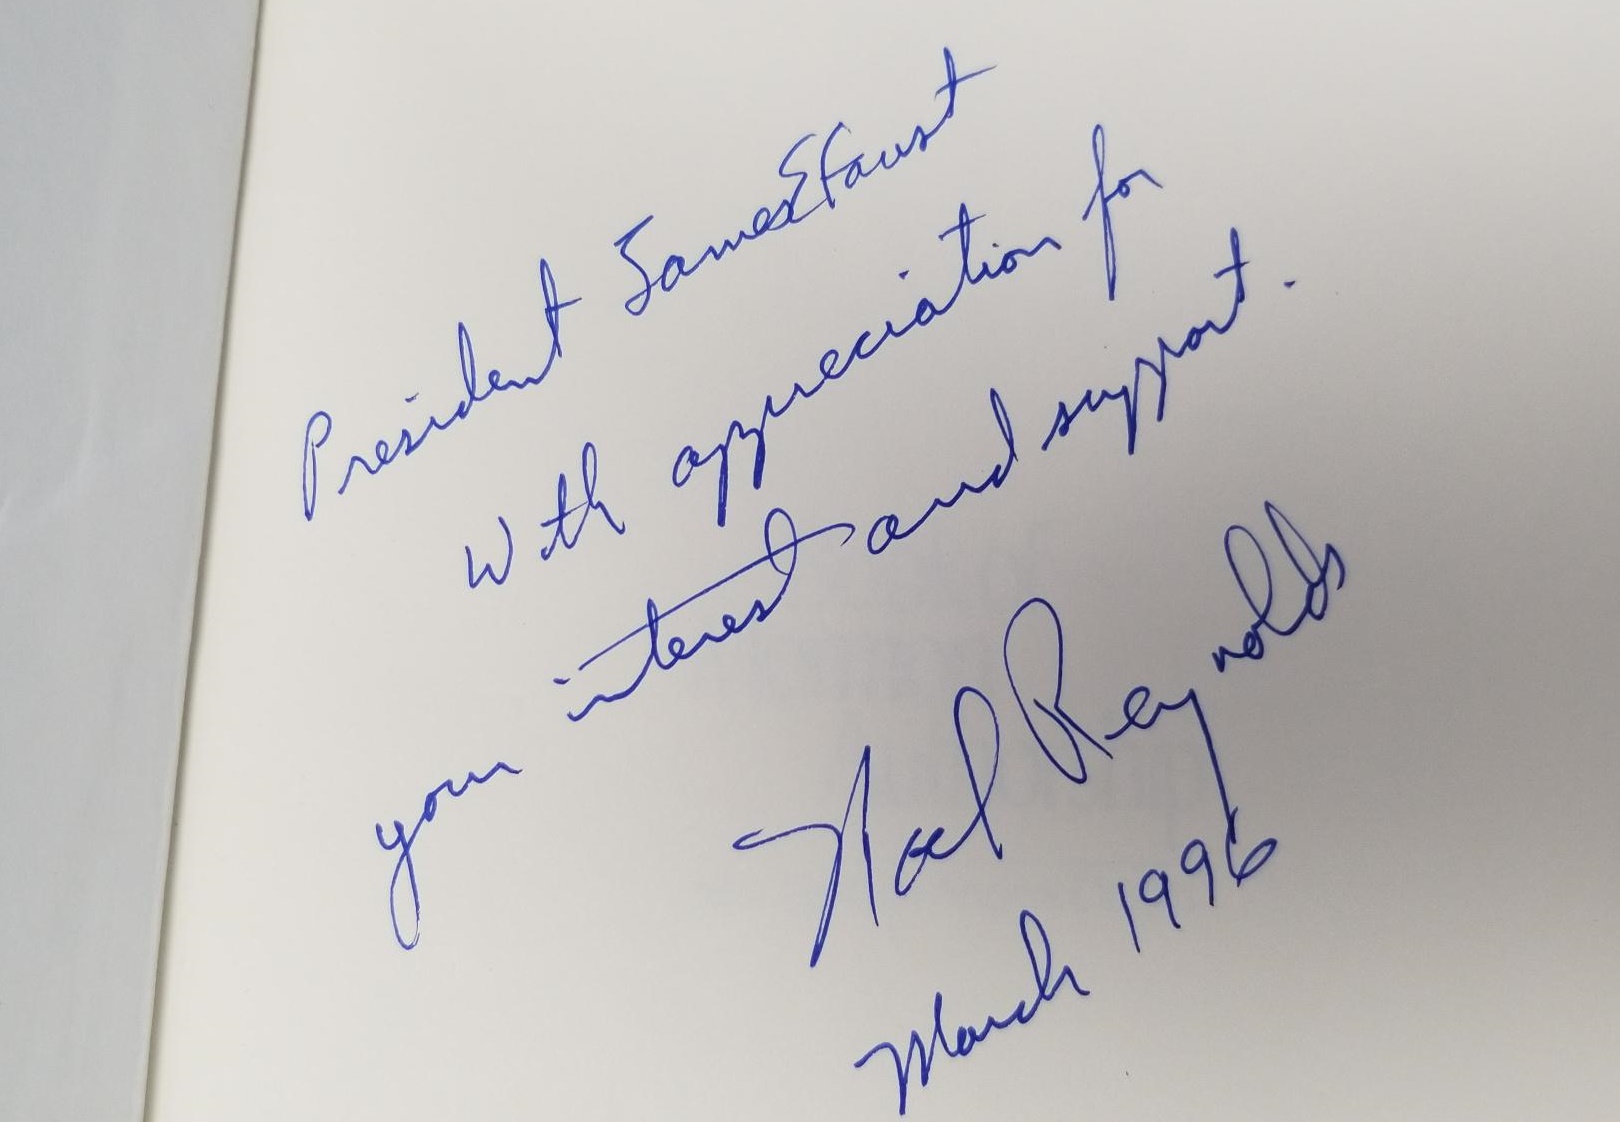 President James E Faust
With appreciation for
your interest and support.
Noel Reynolds
March 1996